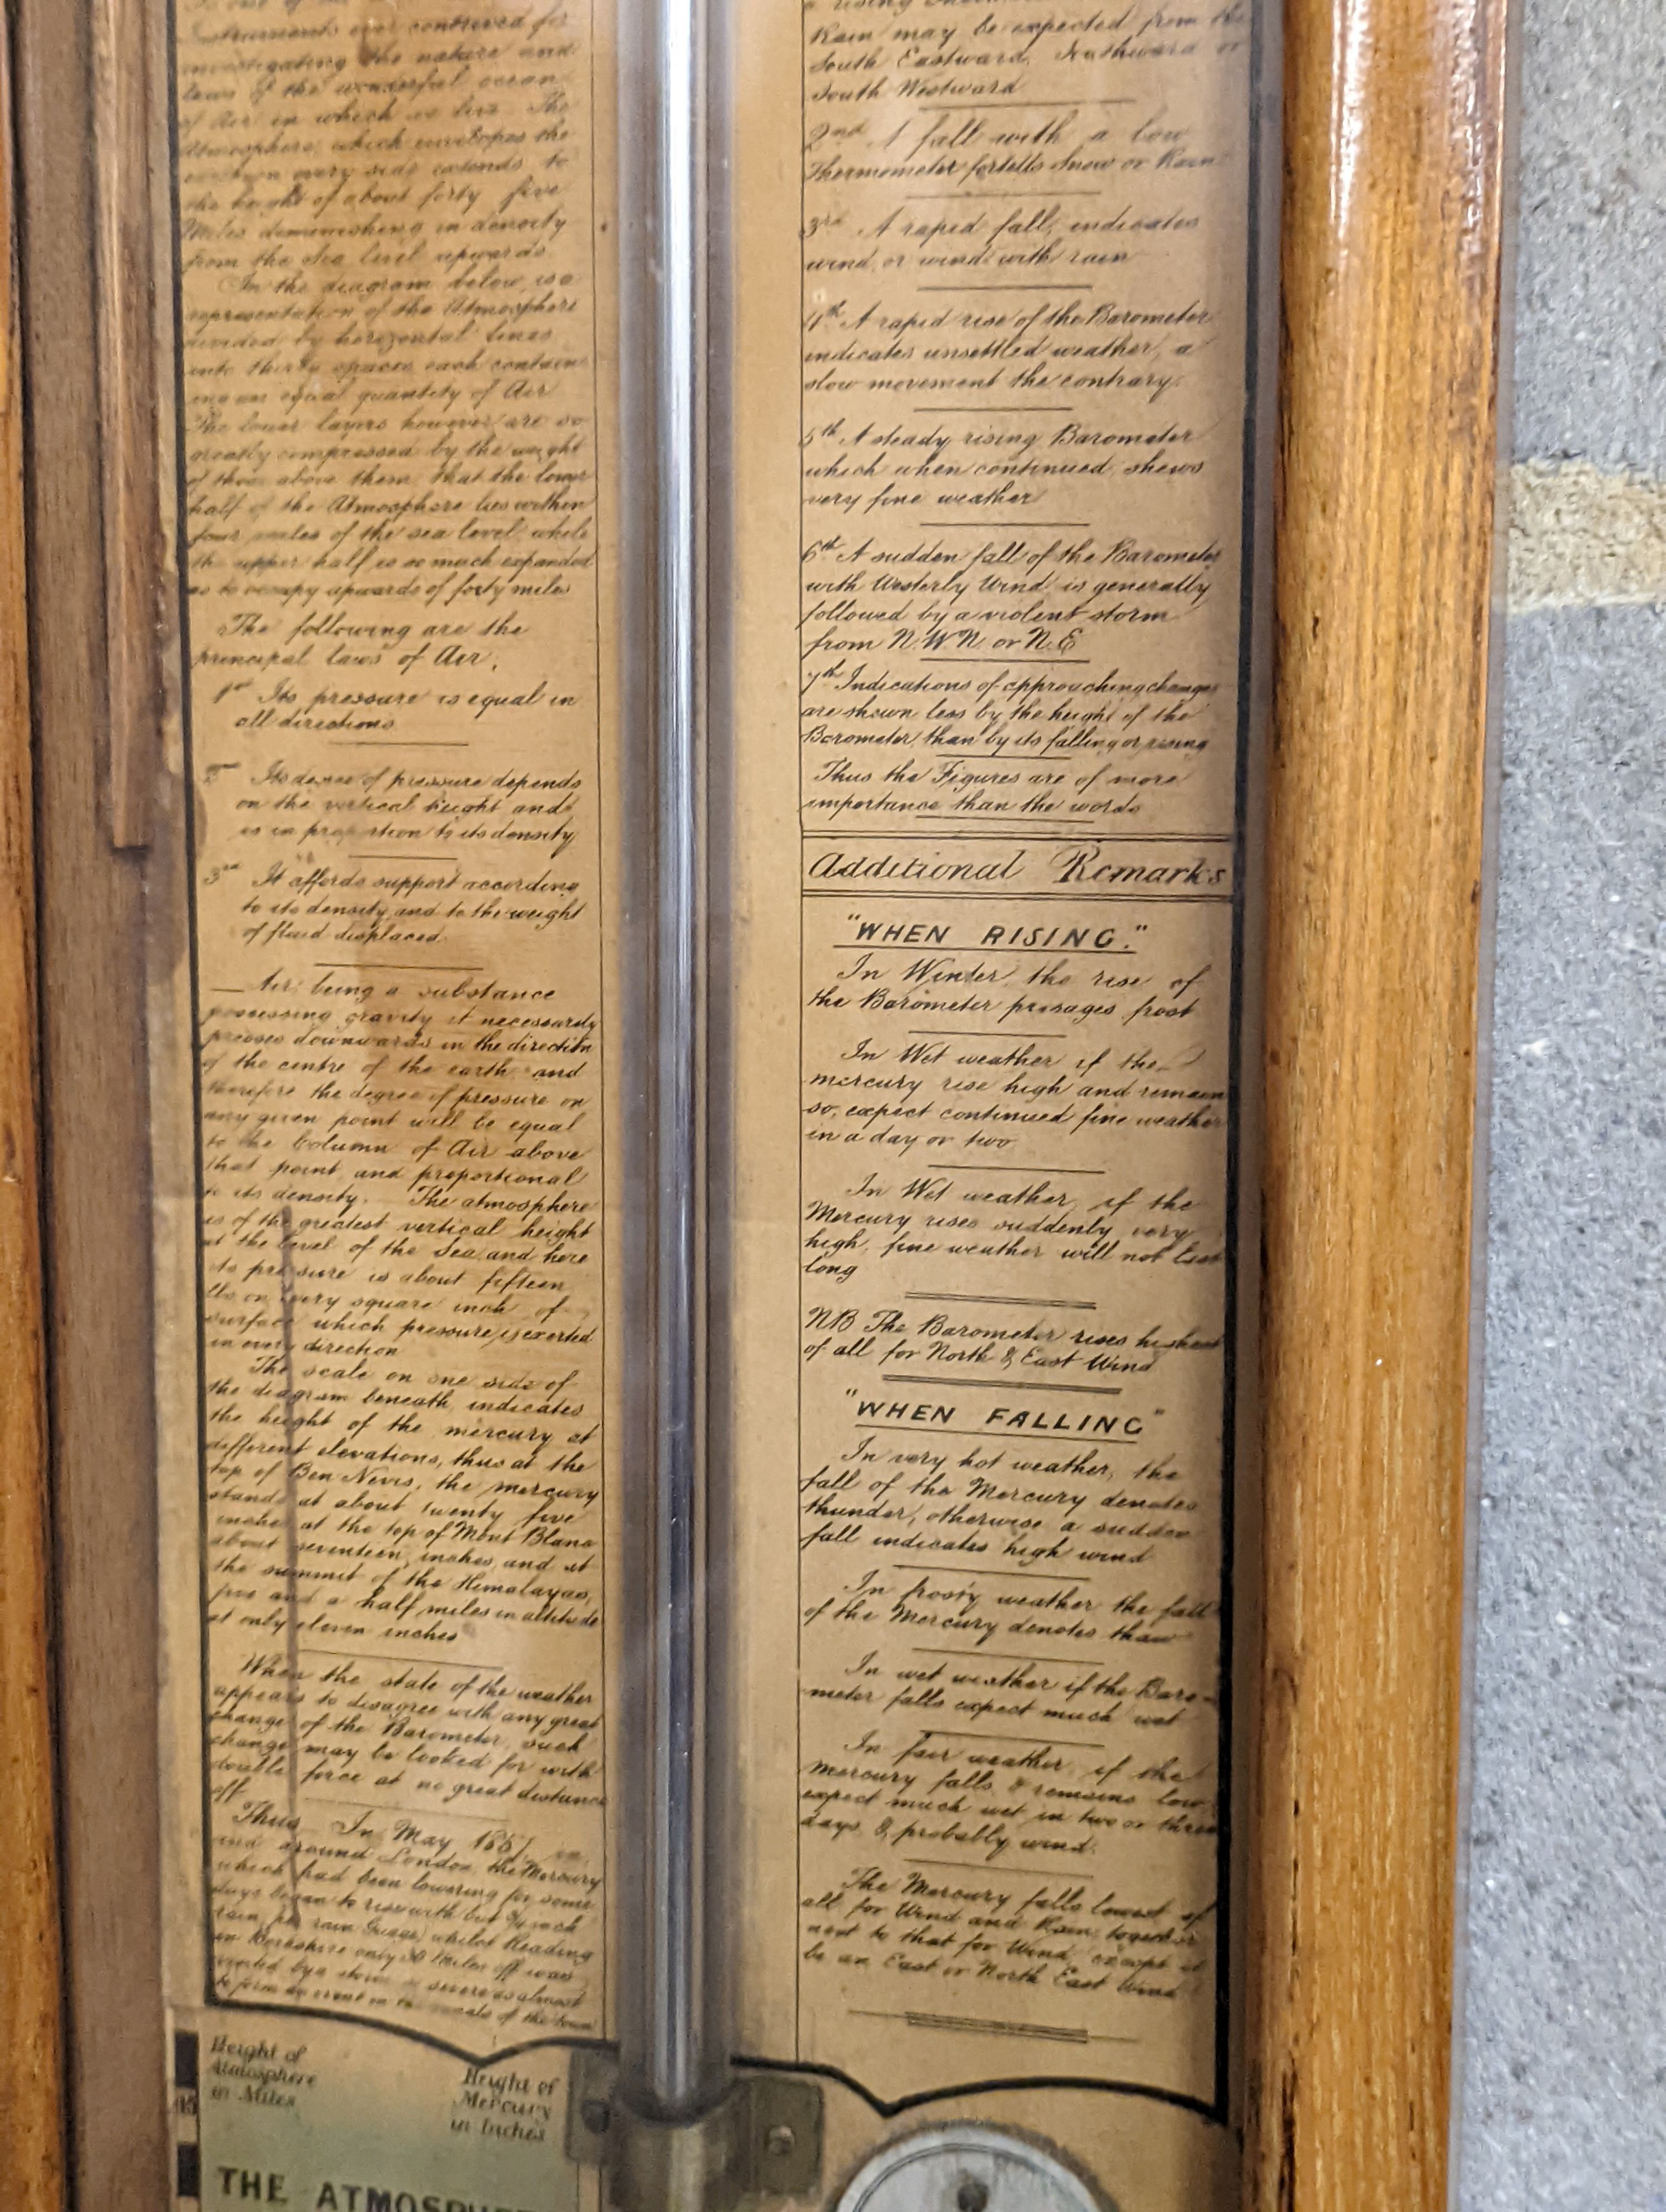 Instruments ever contrived for
investigating the nature and
laws of the wonderful ocean
of Air in which we live. The
Atmosphere, which envelopes the
every side extends to
the height of about forty five
Miles deminishing in density
from the Sea level upwards.
In the diagram below, is a
representation of the Atmosphere
divided by horizontal lines
into thirty spaces each contain
ing an equal quantity of Air
The lower layers however are so
greatly compressed by the weight
of those above them, that the lower
half of the Atmosphere lies within
four miles of the sea level, while
the upper half is so much expanded
as to occupy upwards of forty miles
The following are the
principal laws of Air,
1st Its pressure is equal in
all directions
Its degree of pressure depends
on the vertical height and
is in proportion to its density
3rd It affords support according
to its density, and to the weight
of fluid displaced.
Air being a substance
possessing gravity it necessarily
presses downwards in the direction
of the centre of the earth and
therefore the degree of pressure on
any given point will be equal
to the Column of Air above
that point and proportional
to its density. The atmosphere
is of the greatest vertical height
at the level of the Sea, and here
its pressure is about fifteen
lbs on every square inch of
surface which pressure is exerted
in every direction
The scale on one side of
the diagram beneath, indicates
the height of the mercury at
different elevations, thus at the
top of Ben Nevis, the mercury
stands at about twenty five
inches at the top of Mont Blanc
about seventeen inches, and at
the summit of the Himalayas,
five and a half miles in altitude
at only eleven inches
When the state of the weather
appears to disagree with any great
change of the Barometer, such
change may be looked for with
double force at no great distance
off
Thus In May
and around London, the Mercury
which had been lowering for some
days began to rise with but inch
rain, per rain Guage, whilst Reading
in Berkshire only 30 Miles off was
visited by a storm so severe as almost
to form an event in the annals of the town
Height of
Atmosphere
in Miles
Height of
Mercury
in Inches
45
THE ATMOSPHE
a rising
Rain may be expected from the
South Eastward, Southward or
South Westward
2nd A fall with a low
Thermometer fortells Snow or Rain
3rd A raped fall, indicates
wind, or wind with rain
4th A rapid rise of the Barometer
indicates unsettled weather, a
slow movement the contrary.
5th A steady rising Barometer
which when continued, shews
very fine weather
6th A sudden fall of the Barometer
with Westerly Wind is generally
followed by a violent storm
from N.W N. or N.E
7th Indications of approuching changes
are shown less by the height of the
Barometer, than by its falling or rising
Thus the Figures are of more
importance than the words
Additional Remarks
"WHEN RISING."
In Winter, the rise of
the Barometer presages frost
In Wet weather if the
mercury rise high and remain
so, expect continued fine weather
in a day or two
In Wet weather, if the
Mercury rises suddenly very
high, fine weather will not last
long
NB The Barometer rises highest
of all for North & East Wind
"WHEN FALLING"
In very hot weather, the
fall of the Mercury denotes
thunder, otherwise a sudden
fall indicates high wind
In frosty weather the fall
of the Mercury denotes thaw
In wet weather if the Baro-
meter falls expect much wet
In fair weather, if the
Mercury falls & remains low
expect much wet in two or three
days & probably wind.
The Mercury falls lowest of
all for Wind and Rain together
next to that for Wind, except it
be an East or North East Wind